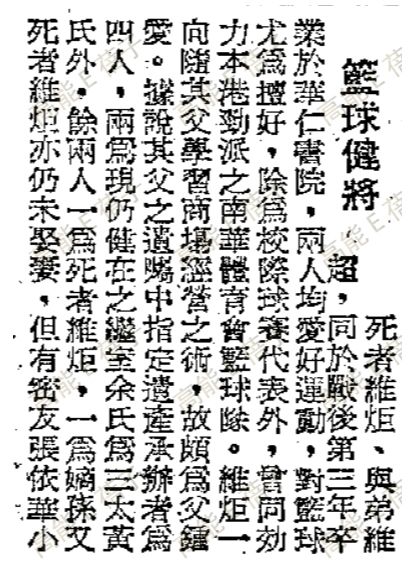 籃球健將
死者維炬、與弟維
超，同於戰後第三年卒
業於華仁書院，兩人均愛好運動，對籃球
尤爲擅好，除爲校際球賽代表外，曾同効
力本港勁派之南華體育會籃球隊。維炬一
向隨其父學習商塲經營之術，故頗爲父鍾
愛。據說其父之遺囑中指定遺產承辦者爲
四人，兩爲現仍健在之繼室余氏爲三太黃
氏外，餘兩人一爲死者維炬，一爲嫡孫又
死者維炬亦仍未娶妻，但有密友張依華小